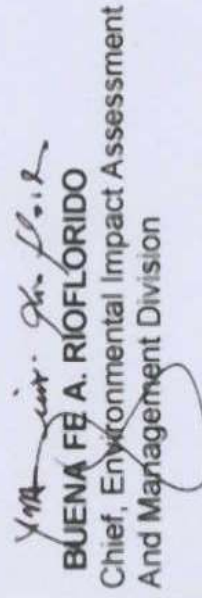 BUENA FE A. RIOFLORIDO
Chief, Environmental Impact Assessment
And Management Division